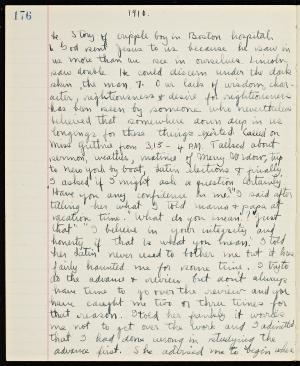 176
1910.
Story of cripple boy in Boston hospital.
God sent Jesus to us because he saw in
us more than we see in ourselves. Lincoln
saw double. He could discern under the dark
skin, the man. Our lack of wisdom, char-
acter, righteousness & desire for righteousness
has been seen by someone who nevertheless
believed that somewhere down deep in us
longings for those things existed. Called on
Miss Guthrie from 3.15 - 4 P.M. Talked about
sermon, weather, matinee of Merry Widow, trip
to New York by boat, Latin elections & finally
I asked if I might ask a question. Certainly
"Have you any confidence in me?" I said after
telling her what I told mama & papa at
vacation time. "What do you mean?" "Just
that" "I believe in your integrity and
honesty if that is what you mean." I told
her Latin never used to bother me but it has
fairly haunted me for some time. I try to
do the advance & review but don't always
have time to go over the review and you
have caught me two or three times for
that reason. I told her frankly it worries
me not to get over the work and I admitted
that I had done wrong in studying the
advance first. She advised me to begin where